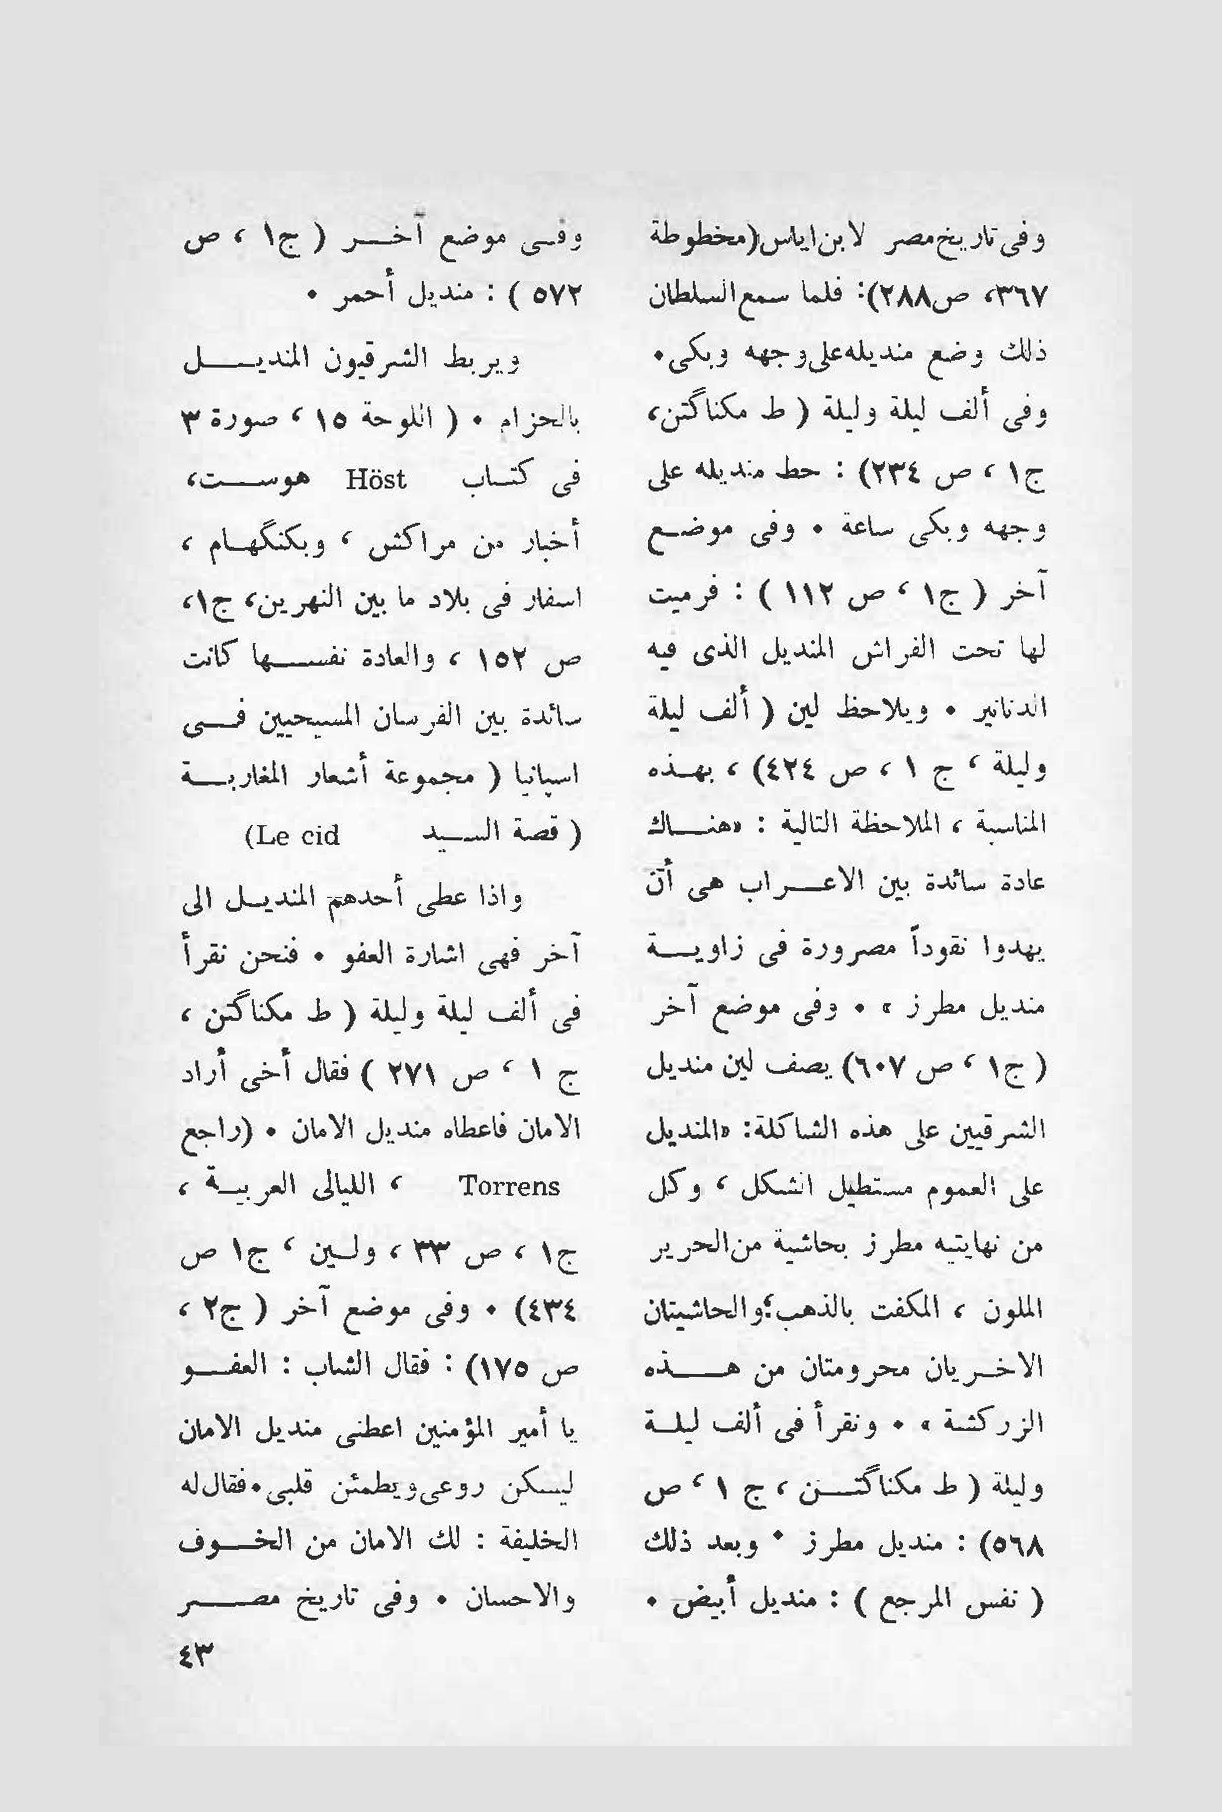 وفى تاريخ مصر لابن اياس (مخطوطة
٣٦٧، ص٢٨٨): فلما سمع السلطان
ذلك وضع منديله على وجهه وبكى٠
وفى ألف ليلة وليلة ( ط مكناگتن،
ج١ ، ص ٢٣٤) : حط منديله على
وجهه وبكى ساعة ٠ وفى موضع
آخر ( ج١ ، ص ١١٢ ) : فرميت
لها تحت الفراش المنديل الذى فيه
الدنانير ٠ ويلاحظ لين ( ألف ليلة
وليلة ، ج ١ ، ص ٤٢٤) ، بهذه
المناسبة ، الملاحظة التالية : «هناك
عادة سائدة بين الاعراب هى أن
يهدوا نقوداً مصرورة فى زاوية
منديل مطرز » ٠ وفى موضع آخر
( ج١ ، ص ٦٠٧) يصف لين منديل
الشرقيين على هذه الشاكلة: «المنديل
على العموم مستطيل الشكل ، وكل
من نهايتيه مطرز بحاشية من الحرير
الملون ، المكفت بالذهب؛ والحاشيتان
الاخريان محرومتان من هذه
الزركشة » ٠ ونقرأ فى ألف ليلة
وليلة ( ط مكناگتن ، ج ١ ، ص
٥٦٨) : منديل مطرز ٠ وبعد ذلك
( نفس المرجع ) : منديل أبيض ٠
وفى موضع آخر ( ج١ ، ص
٥٧٢ ) : منديل أحمر ٠
ويربط الشرقيون المنديل
بالحزام ٠ ( اللوحة ١٥ ، صورة ٣
فى كتاب Höst هوست،
أخبار من مراكش ، وبكنگهام ،
اسفار فى بلاد ما بين النهرين، ج١،
ص ١٥٢ ، والعادة نفسها كانت
سائدة بين الفرسان المسيحيين فى
اسپانيا ( مجموعة أشعار المغاربة
( قصة السيد Le cid)
واذا عطى أحدهم المنديل الى
آخر فهى اشارة العفو ٠ فنحن نقرأ
فى ألف ليلة وليلة ( ط مكناگتن ،
ج ١ ، ص ٢٧١ ) فقال أخى أراد
الامان فاعطاه منديل الامان ٠ (راجع
Torrens ، الليالى العربية ،
ج١ ، ص ٣٣ ، ولين ، ج١ ص
٤٣٤) ٠ وفى موضع آخر ( ج٢ ،
ص ١٧٥) : فقال الشاب : العفو
يا أمير المؤمنين اعطنى منديل الامان
ليسكن روعى ويطمئن قلبى٠ فقال له
الخليفة : لك الامان من الخوف
والاحسان ٠ وفى تاريخ مصر
٤٣